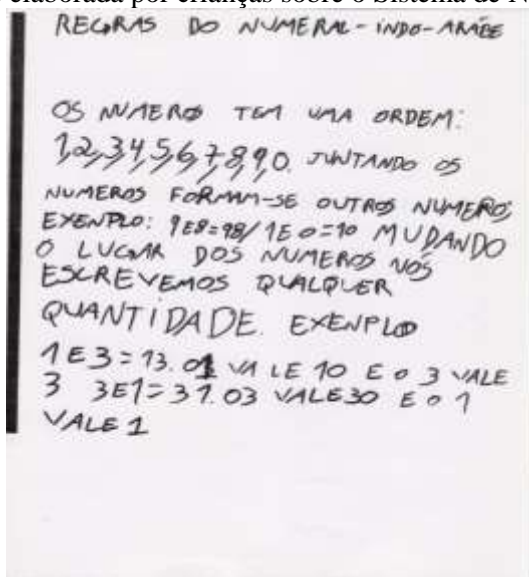 elaborada por crianças sobre o Sistema de N
REGRAS DO NUMERAL-INDO-ARABE
OS NUMERO TEM UMA ORDEM:
1,2,3,4,5,6,7,8,9,0. JUNTANDO OS
NUMEROS FORMAM-SE OUTROS NUMEROS,
EXENPLO: 9E8=98/1E0=10 MUDANDO
O LUGAR DOS NUMEROS NÓS
ESCREVEMOS QUALQUER
QUANTIDADE. EXENPLO
1E3=13.01 VALE 10 E O 3 VALE
3 3E1=31.03 VALE30 E O 1
VALE 1